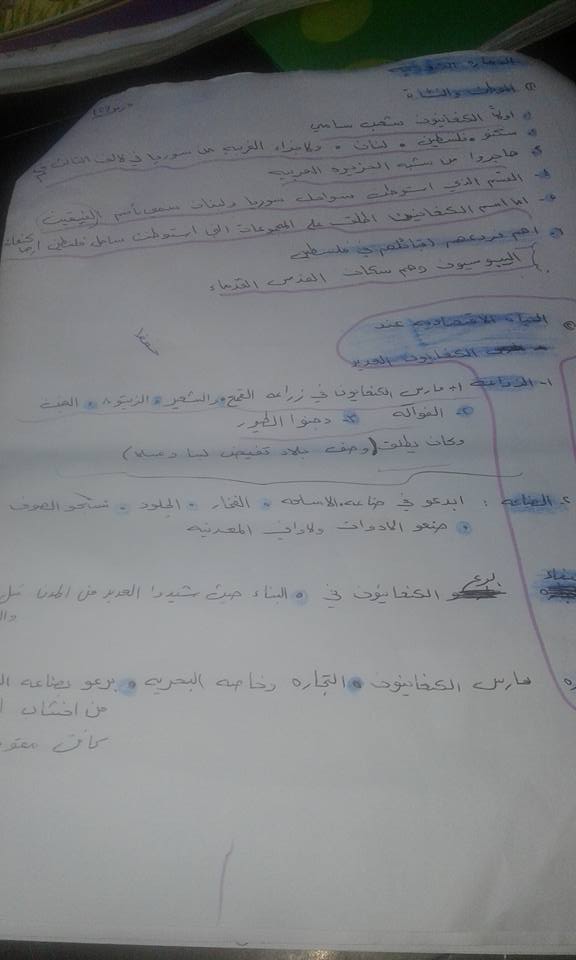 الحضارة الكنعانية
الموطن والنشأة
اولاً الكنعانيون شعب سامي
سكنو فلسطين ، لبنان ، والاجزاء الغربيه من سوريا في الالف الثالث ق.م
هاجروا من شبه الجزيره العربيه
القسم الذي استوطن سواحل سوريا ولبنان سمي باسم الفينقين
اما اسم الكنعانيون اطلق على المجموعات التي استوطنت ساحل فلسطين ارض كنعان
اهم فروعهم (قبائلهم في فلسطين
اليبوسيون وهم سكان القدس القدماء
الحياه الاقتصاديه عند
الكنعانيون
١- الزراعة ١* مارس الكنعانيون في زراعه القمح ، الشعير ، الزيتون ، العنب
الفواكه دجنوا الطيور
وكان يطلق (وصف بلاد تفيض لبنا وعسلا)
٢- الصناعه : ابدعو في صناعه الاسلحه ، الفخار ، الجلود ، نسيج الصوف
صنعو الادوات والاواني المعدنيه
برع الكنعانيون في البناء حيث شيدوا العديد من المدن
مارس الكنعانيون التجاره وخاصه البحريه برعو بصناعه
من اخشاب